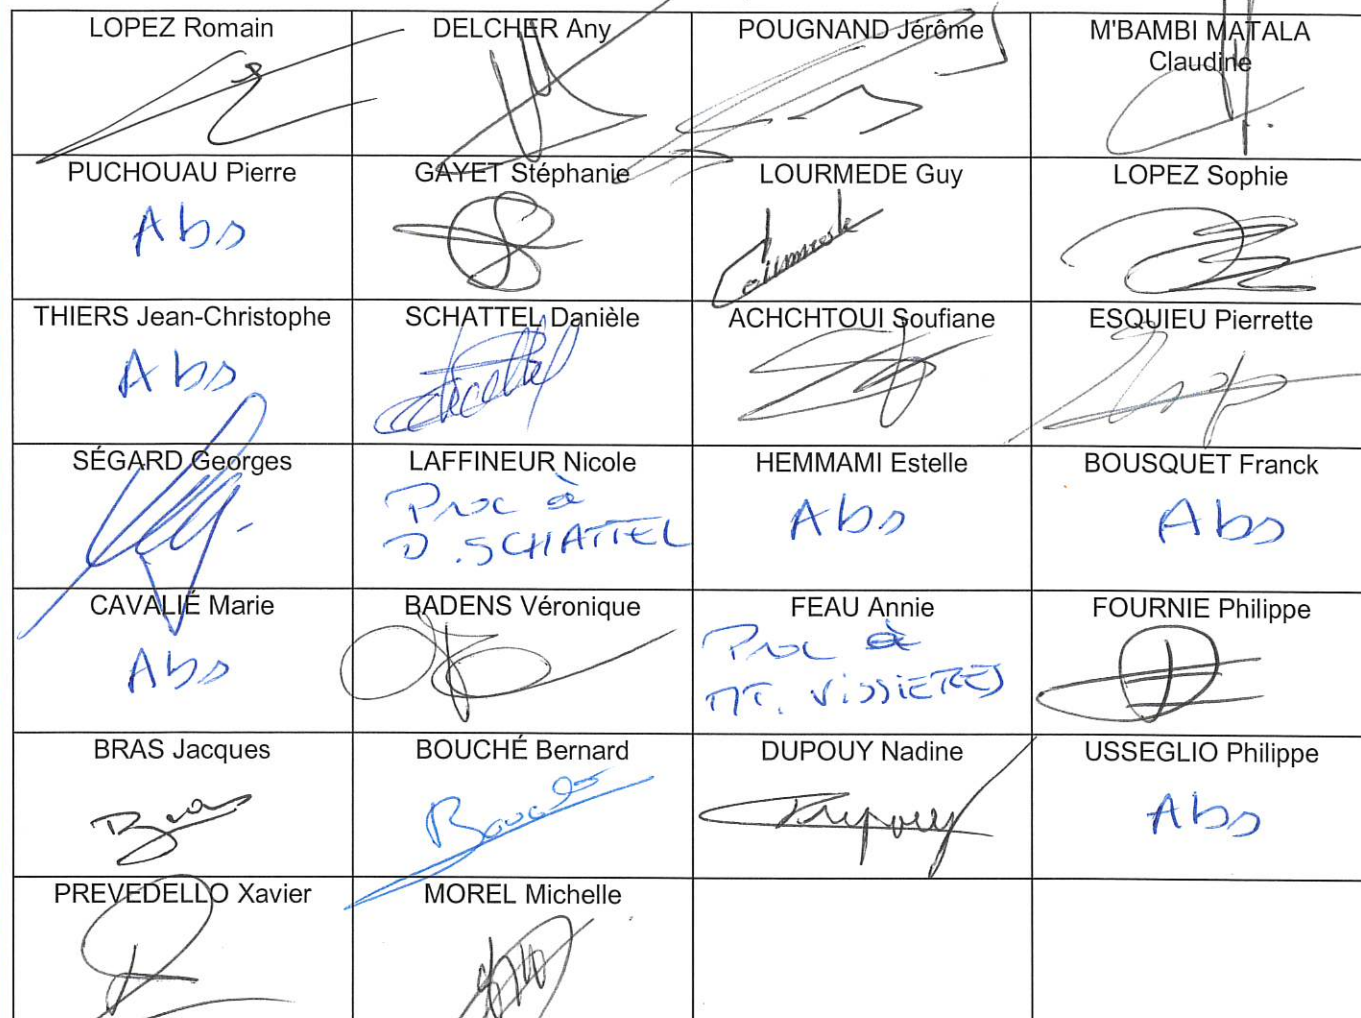 LOPEZ Romain
DELCHER Any
POUGNAND Jérôme
M'BAMBI MATALA
Claudine
PUCHOUAU Pierre
Abs
GAYET Stéphanie
LOURMEDE Guy
LOPEZ Sophie
THIERS Jean-Christophe
Abs
SCHATTEL Danièle
ACHCHTOUI Soufiane
ESQUIEU Pierrette
SÉGARD Georges
LAFFINEUR Nicole
Proc à
D. SCHATTEL
HEMMAMI Estelle
Abs
BOUSQUET Franck
Abs
CAVALIÉ Marie
Abs
BADENS Véronique
FEAU Annie
Proc à
MT. VISSIERES
FOURNIE Philippe
BRAS Jacques
Bras
BOUCHÉ Bernard
DUPOUY Nadine
Dupouy
USSEGLIO Philippe
Abs
PREVEDELLO Xavier
MOREL Michelle